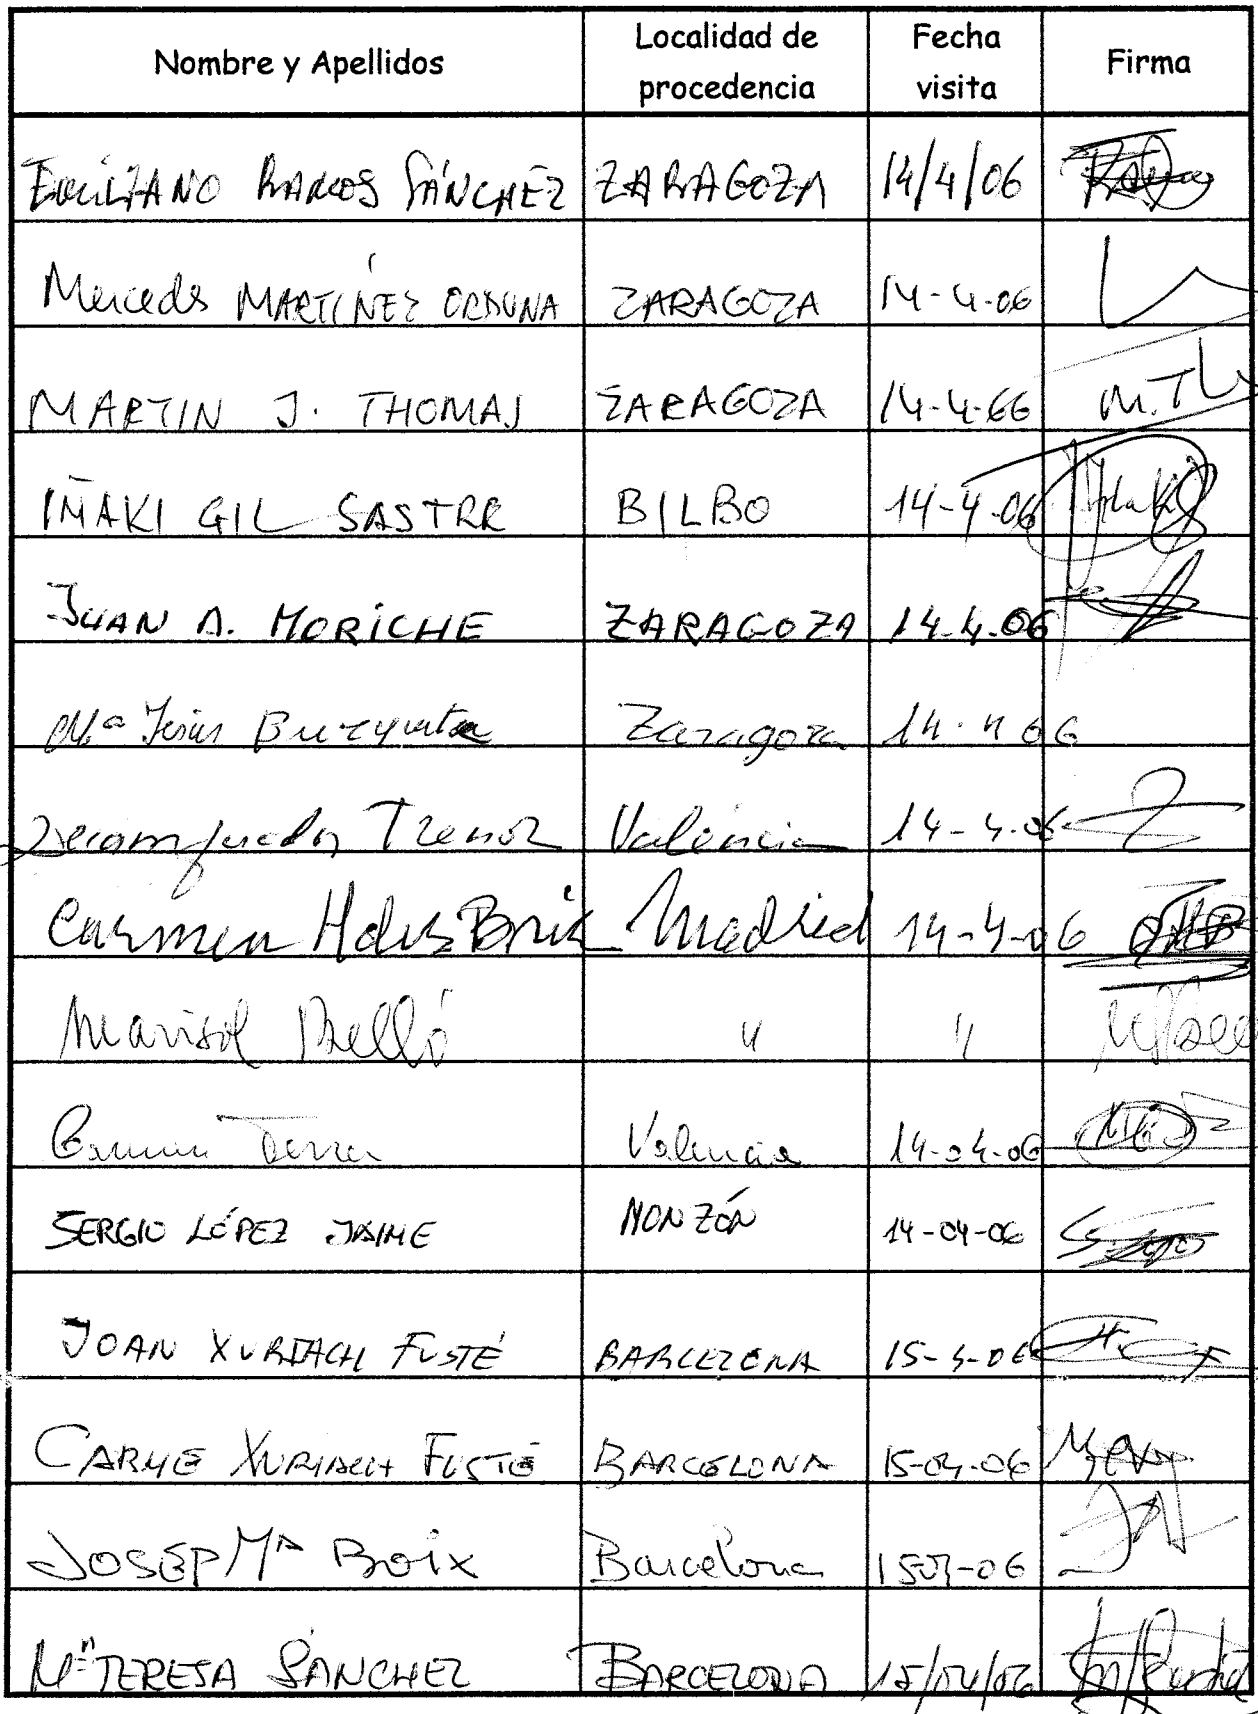 Nombre y Apellidos Localidad de procedencia Fecha visita Firma
EMILIANO RAMOS SÁNCHEZ ZARAGOZA 14/4/06
Mercedes MARTÍNEZ ORDUNA ZARAGOZA 14-4-06
MARTIN J. THOMAS ZARAGOZA 14-4-66 M.T
IÑAKI GIL SASTRE BILBO 14-4-06 Iñaki
JUAN A. MORICHE ZARAGOZA 14.4.06
Mª Jesús Zaragoza 14.4 06
Trenor Valencia 14-4-06
Carmen Madrid 14-4-06
Marisol Belló " "
Carmen Valencia 14-04-06
SERGIO LÓPEZ JAIME MONZÓN 14-04-06
JOAN XURIACH FUSTÉ BARCELONA 15-4-06
CARME XURIACH FUSTÉ BARCELONA 15-04-06
JOSEP Mª Boix Barcelona 15-04-06
Mª TERESA SÁNCHEZ BARCELONA 15/04/06